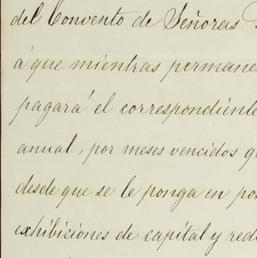 del Convento de Señoras
á que mientras permane
pagará el correspondiente
anual, por meses vencidos q
desde que se le ponga en pos
exhibiciones de capital y red